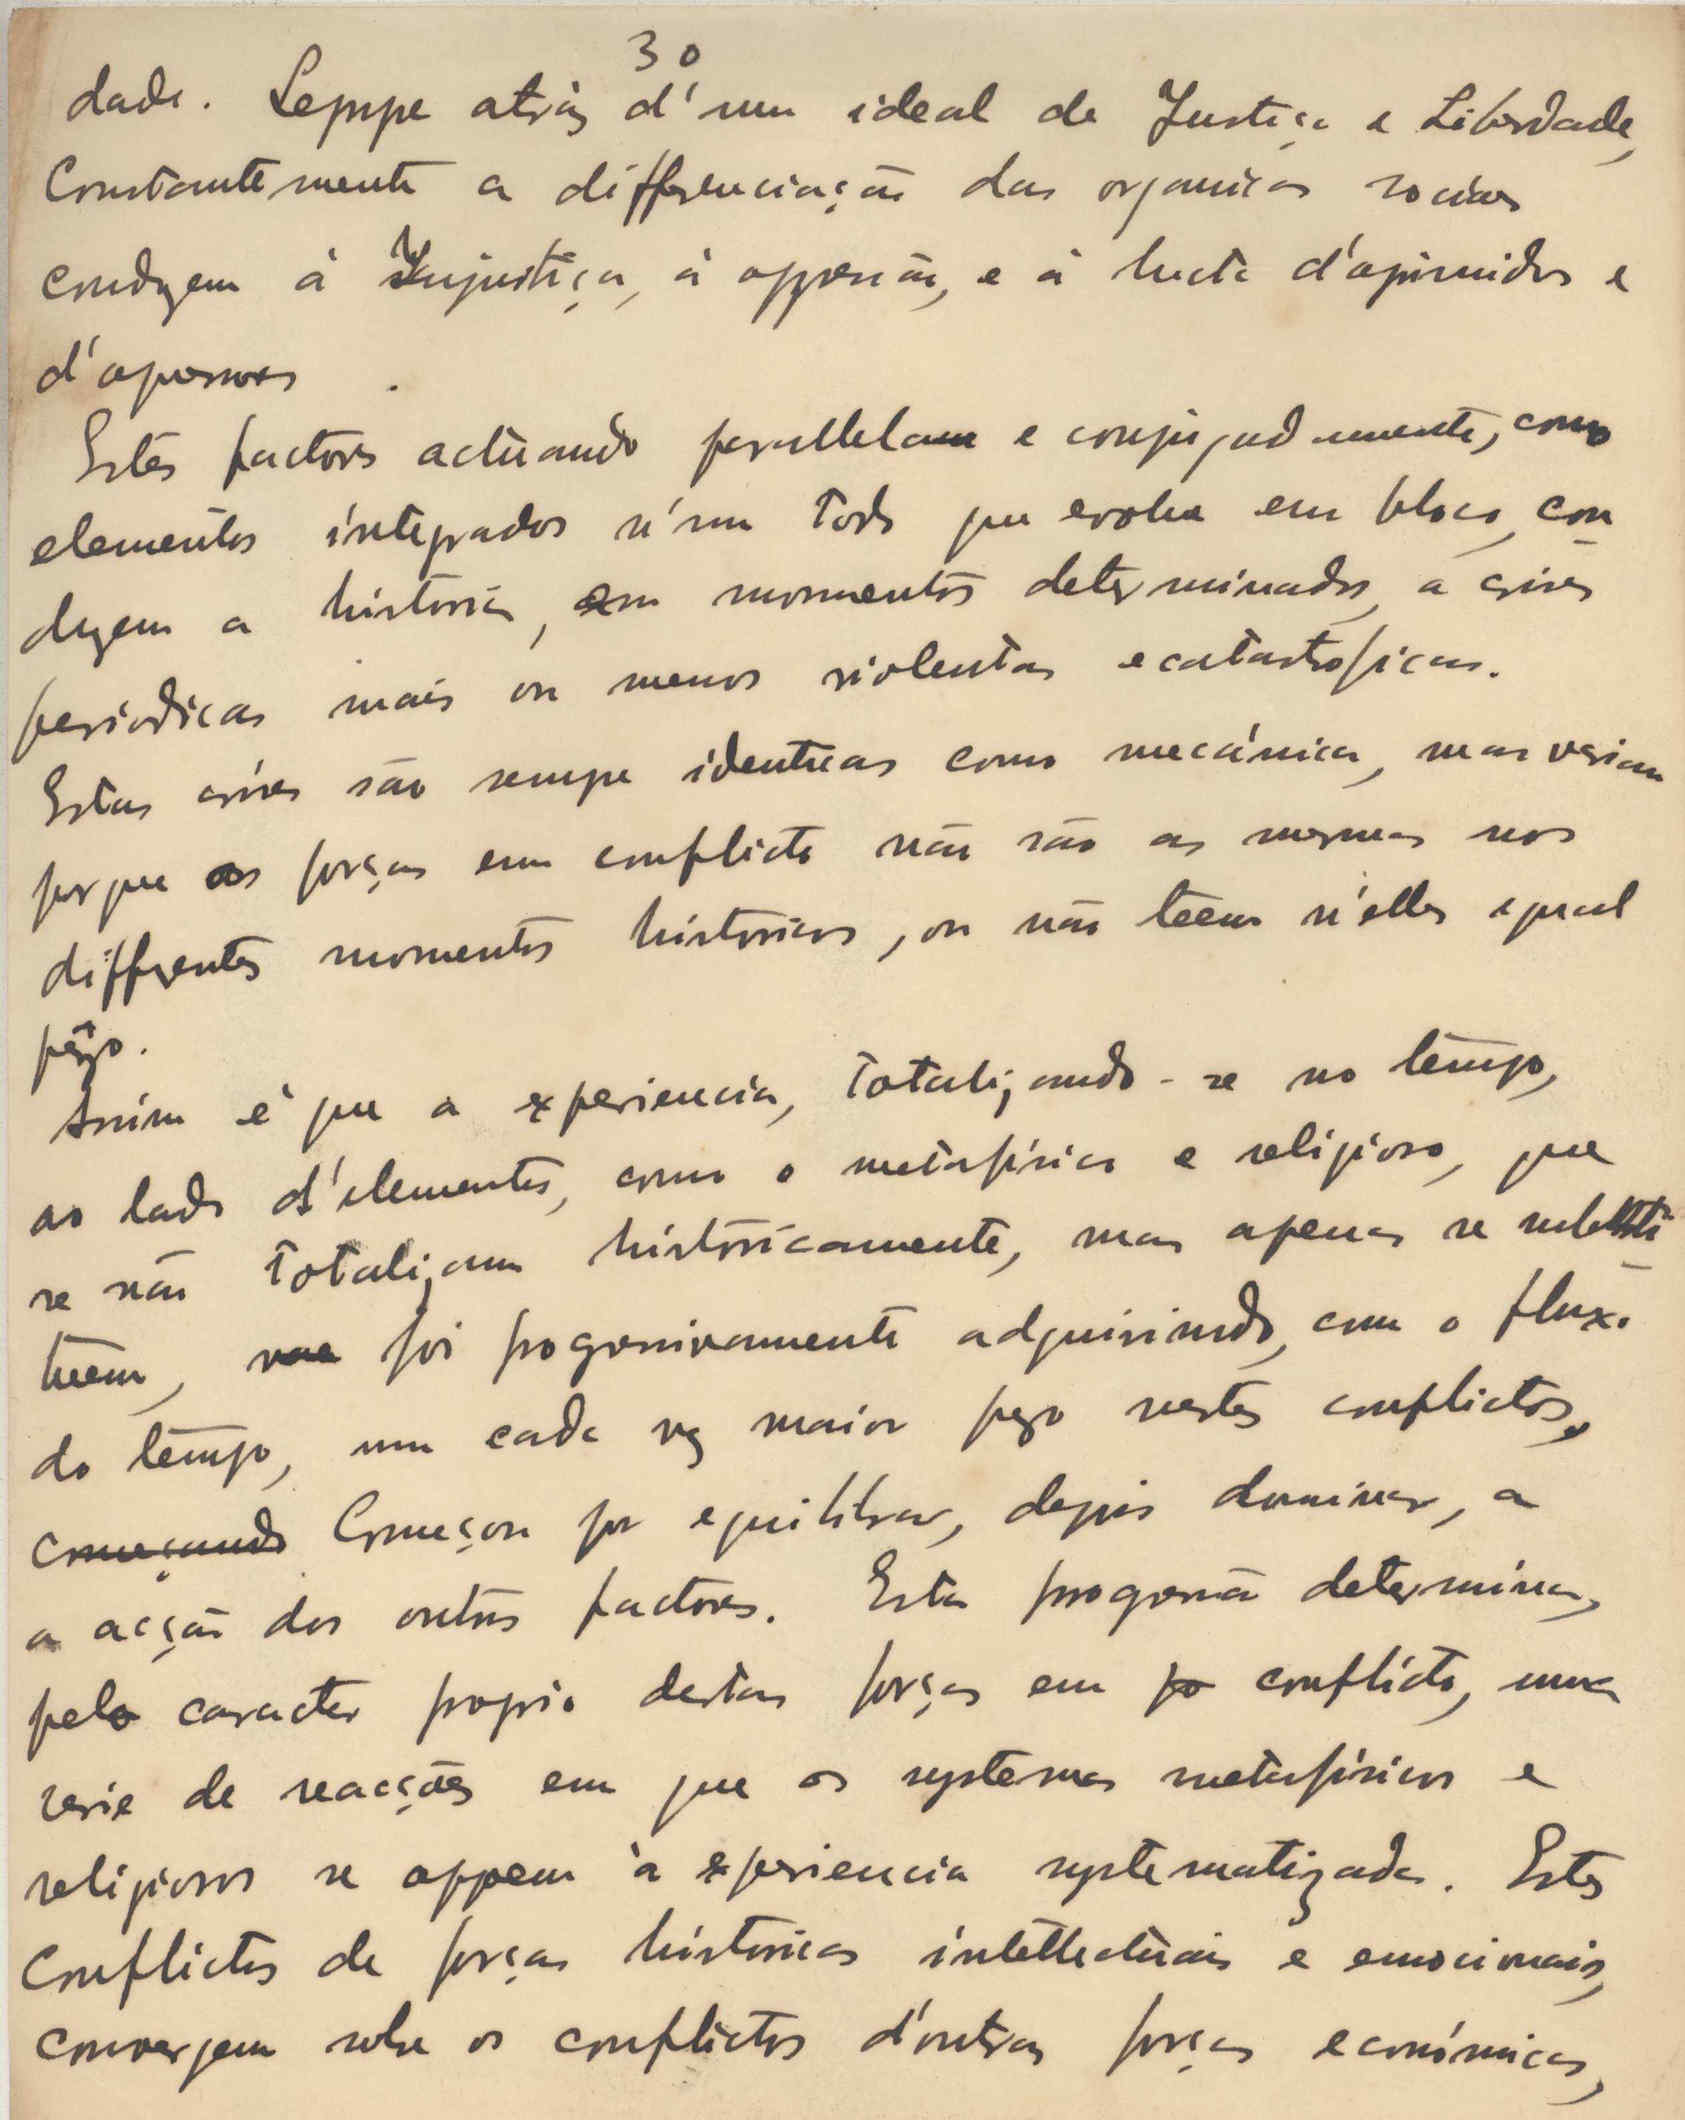 30
dade. Sempre atrás d'um ideal de Justiça e Liberdade,
Constantemente a differenciação das organicas sociaes
conduzem à Injustiça, à oppressão, e à lucta d'oprimidos e
d'opressores .
Estes factores actùando parallelam e conjugadamente, como
elementos integrados n'um todo que evolue em bloco, con
duzem a historia, em momentos determinados, a crises
periodicas mais ou menos violentas e catastroficas.
Estas crises são sempre identicas como mecánica, mas variam
porque as forças em conflicto não são as mesmas nos
differentes momentos historicos, ou não teem n'elles egual
pêzo.
Assim é que a experiencia, totalizando-se no tempo,
ao lado d'elementos, como o metafísico e religioso, que
se não totalizam historicamente, mas apenas se substi
tuem, foi progressivamente adquirindo, com o fluxo
do tempo, um cada vez maior pezo nestes conflictos,
começando Começou por equilibrar, depois dominar, a
a acção dos outros factores. Esta progressão determina,
pelo caracter proprio destas forças em conflicto, uma
serie de reacções em que os systemas metafísicos e
religiosos se oppoem à experiencia systematizada. Estes
Conflictos de forças historicas intellectùais e emocionais,
convergem sobre os conflictos d'outras forças económicas,